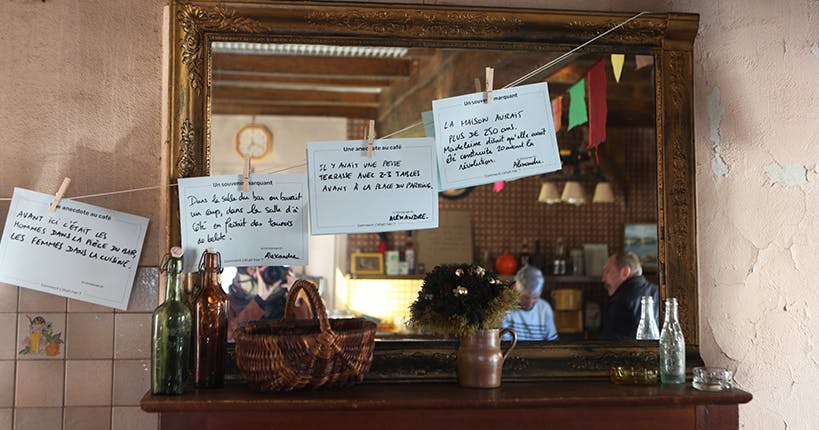 Une anecdote au café
AVANT ICI C'ÉTAIT LES
HOMMES DANS LA PIÈCE DU BAR,
LES FEMMES DANS LA CUISINE.
Comment c'était hier ?
Un souvenir marquant
Dans la salle du bar on buvait
un coup, dans la salle d'à
côté on faisait des tournois
de belote.
Comment c'était hier ?
ALEXANDRE
Une anecdote au café
IL Y AVAIT UNE PETITE
TERRASSE AVEC 2-3 TABLES
AVANT À LA PLACE DU PARKING.
Comment c'était hier ?
ALEXANDRE.
Un souvenir marquant
LA MAISON AURAIT
PLUS DE 250 ans.
Madeleine disait qu'elle avait
été construite 20 avant la
révolution.
Comment c'était hier ?
Alexandre